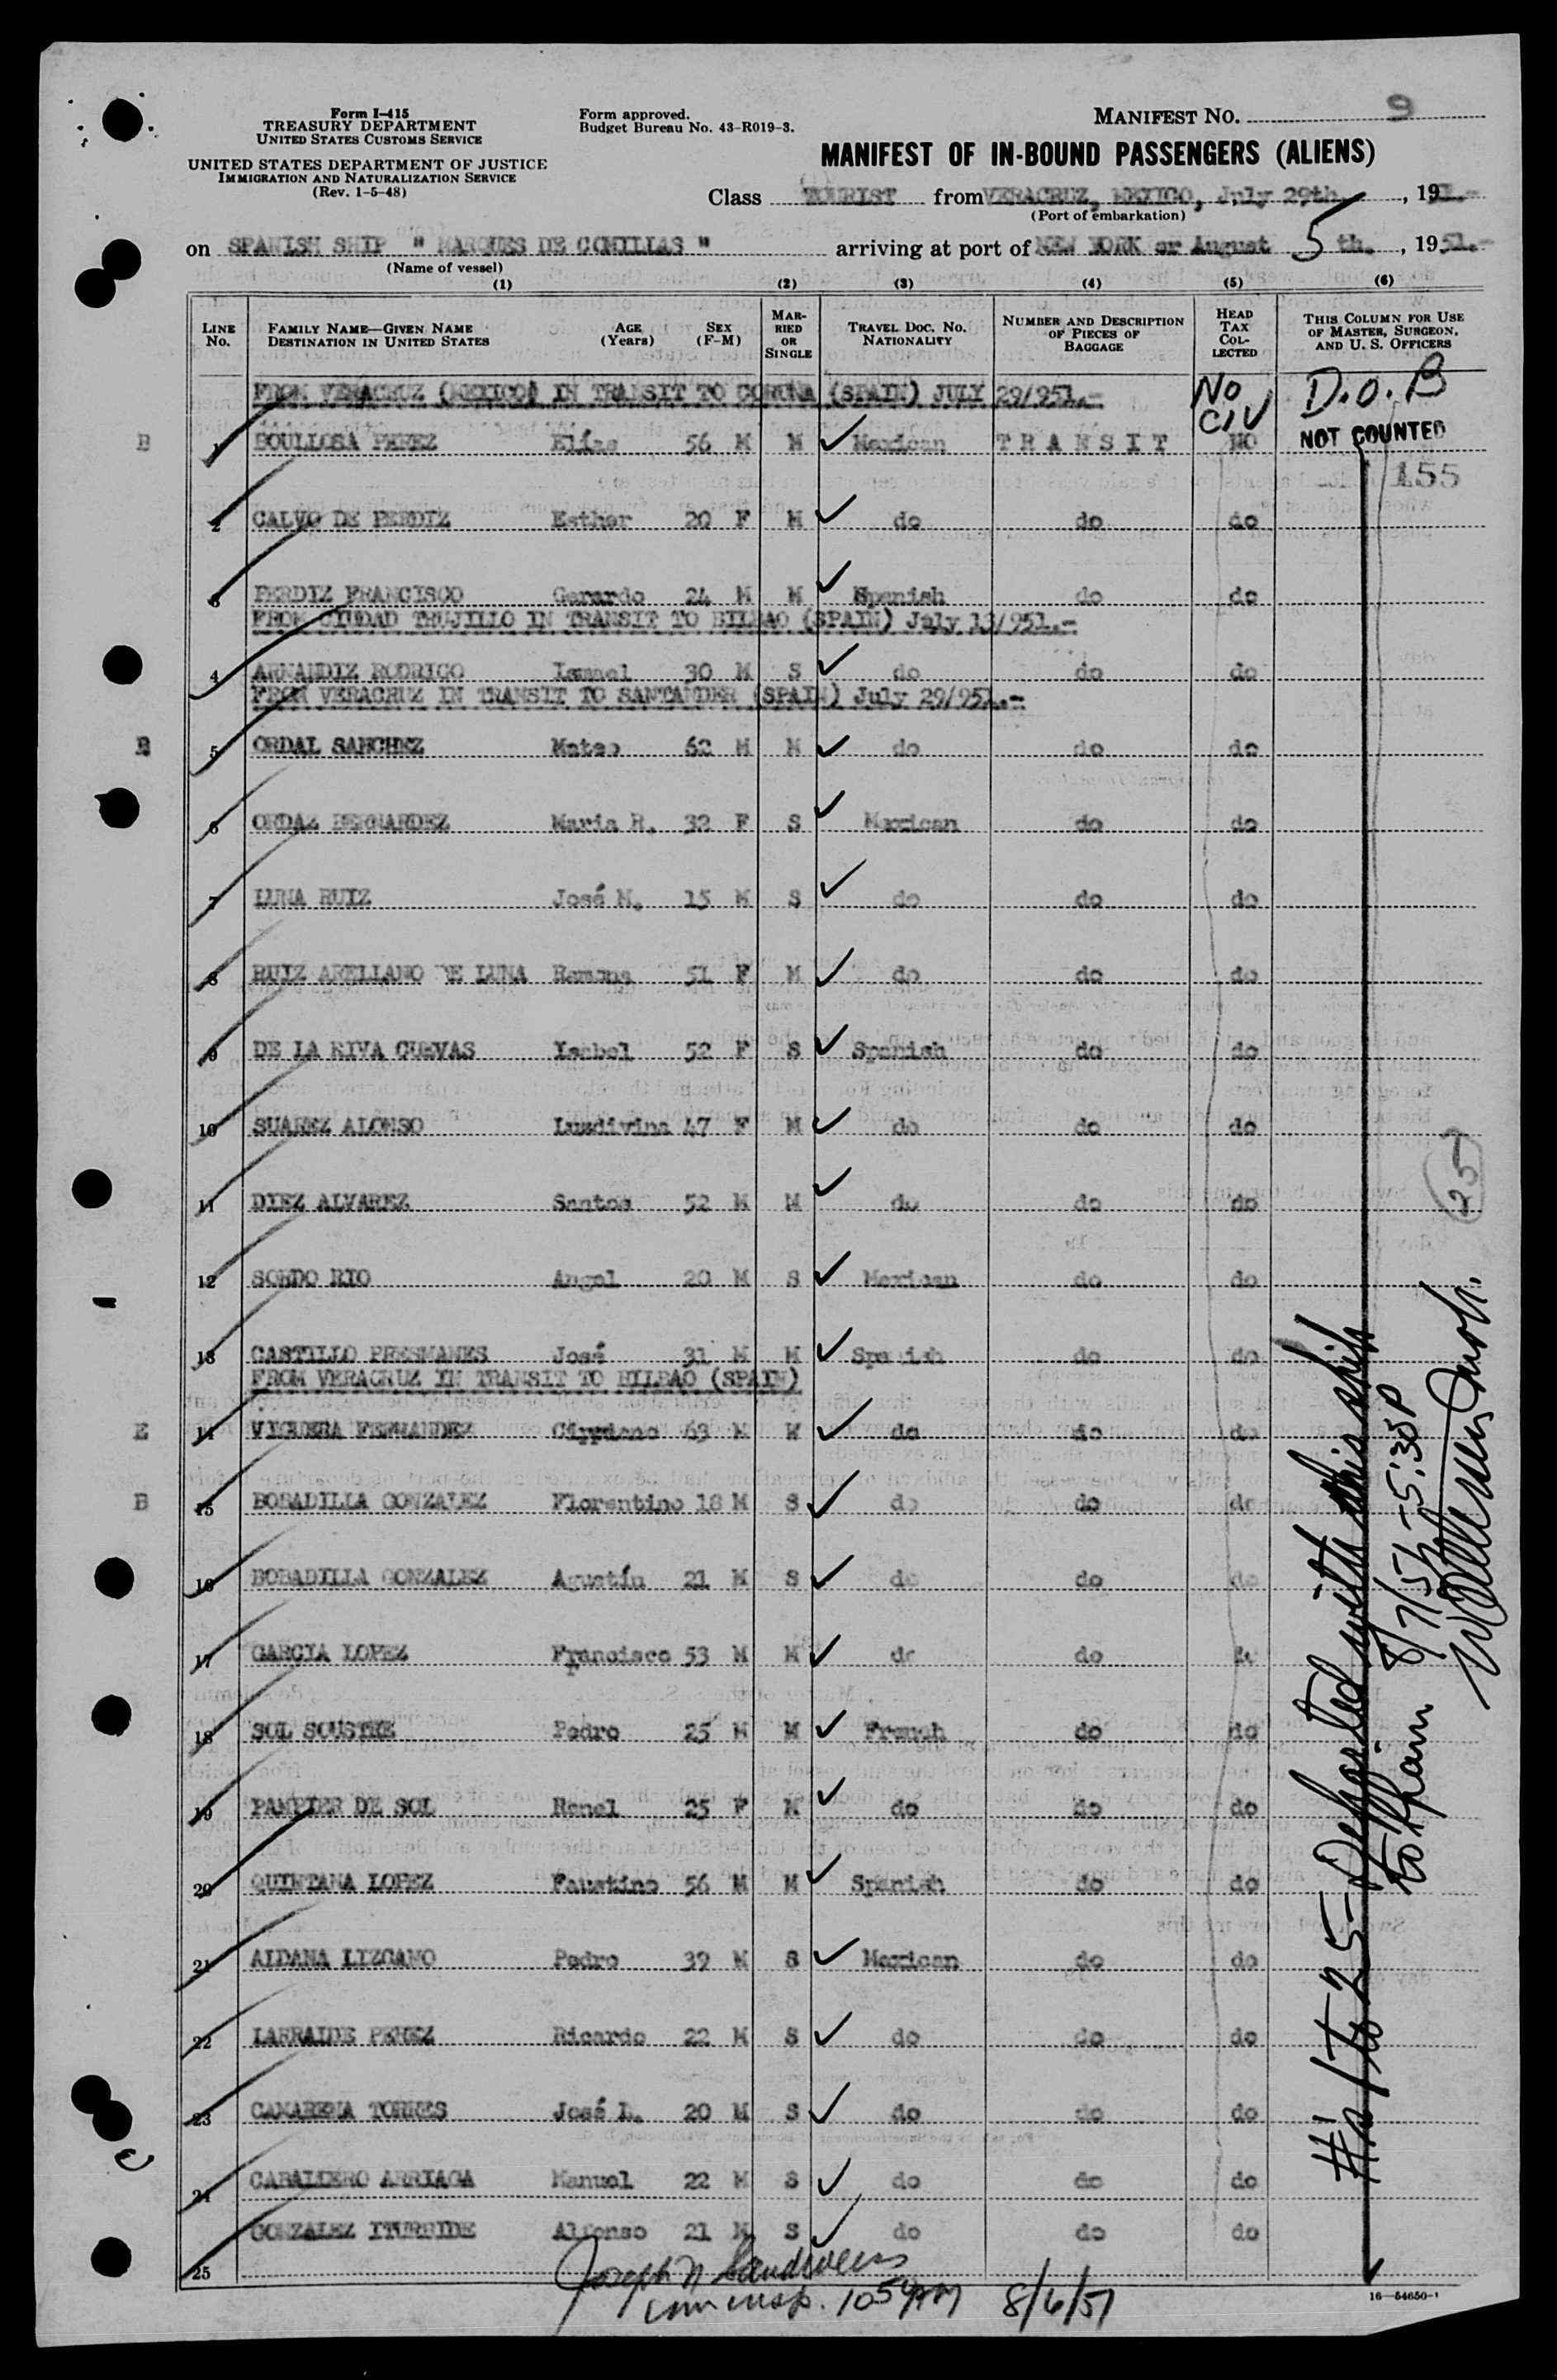 Form I-415
TREASURY DEPARTMENT
UNITED STATES CUSTOMS SERVICE
UNITED STATES DEPARTMENT OF JUSTICE
IMMIGRATION AND NATURALIZATION SERVICE
(Rev. 1-5-48)
Form approved.
Budget Bureau No. 43-R019-3.
MANIFEST NO. 9
MANIFEST OF IN-BOUND PASSENGERS (ALIENS)
Class TOURIST from VERACRUZ, MEXICO, July 29th, 1951.-
(Port of embarkation)
on SPANISH SHIP " MARQUES DE COMILLAS " arriving at port of NEW YORK or August 5 th., 1951.-
(Name of vessel)
(1) (2) (3) (4) (5) (6)
LINE No. FAMILY NAME—GIVEN NAME DESTINATION IN UNITED STATES AGE (Years) SEX (F-M) MARRIED OR SINGLE TRAVEL DOC. NO. NATIONALITY NUMBER AND DESCRIPTION OF PIECES OF BAGGAGE HEAD TAX COLLECTED THIS COLUMN FOR USE OF MASTER, SURGEON, AND U. S. OFFICERS
FROM VERACRUZ (MEXICO) IN TRANSIT TO CORUNA (SPAIN) JULY 29/951.- No CIV D.O.B
B 1 BOULLOSA PEREZ Elías 56 M M Mexican TRANSIT NO NOT COUNTED
155
2 CALVO DE PERDIZ Esther 20 F M do do do
3 PERDIZ FRANCISCO Gerardo 24 M M Spanish do do
FROM CIUDAD TRUJILLO IN TRANSIT TO BILBAO (SPAIN) July 13/951.-
4 ARNANDIZ RODRIGO Ismael 30 M S do do do
FROM VERACRUZ IN TRANSIT TO SANTANDER (SPAIN) July 29/951.-
5 ORDAL SANCHEZ Mateo 62 M M do do do
6 ORDAZ BERNARDEZ Maria R. 32 F S Mexican do do
7 LUNA RUIZ José M. 15 M S do do do
8 RUIZ ARELLANO DE LUNA Ramona 51 F M do do do
9 DE LA RIVA CUEVAS Isabel 52 F S Spanish do do
10 SUAREZ ALONSO Luzdivina 47 F M do do do
11 DIEZ ALVAREZ Santos 52 M M do do do
25
12 SORDO RIO Angel 20 M S Mexican do do
13 CASTILLO PRESMANES José 31 M M Spanish do do
FROM VERACRUZ IN TRANSIT TO BILBAO (SPAIN)
14 FERNANDEZ Cipriano 63 M do do do
B 15 BOBADILLA GONZALEZ Florentino 18 M S do do do
16 BOBADILLA GONZALEZ Agustín 21 M S do do do
17 GARCIA LOPEZ Francisco 53 M M do do do
18 SOL SOUSTRE Pedro 25 M M French do do
19 DE SOL 25 F M do do do
20 QUINTANA LOPEZ Faustino 56 M M Spanish do do
21 ALDANA LIZCANO Pedro 39 M S Mexican do do
22 LARRALDE PEREZ Ricardo 22 M S do do do
23 CAMARENA TORRES José L. 20 M S do do do
24 CABALLERO ARRIAGA Manuel 22 M S do do do
25 GONZALEZ ITURBIDE Alfonso 21 M S do do do
#s 1 to 25 - Departed with this ship
to Spain 8/7/51 - 5:30 P
Joseph N
Imm insp. 10 54 AM 8/6/51
16—54650-1